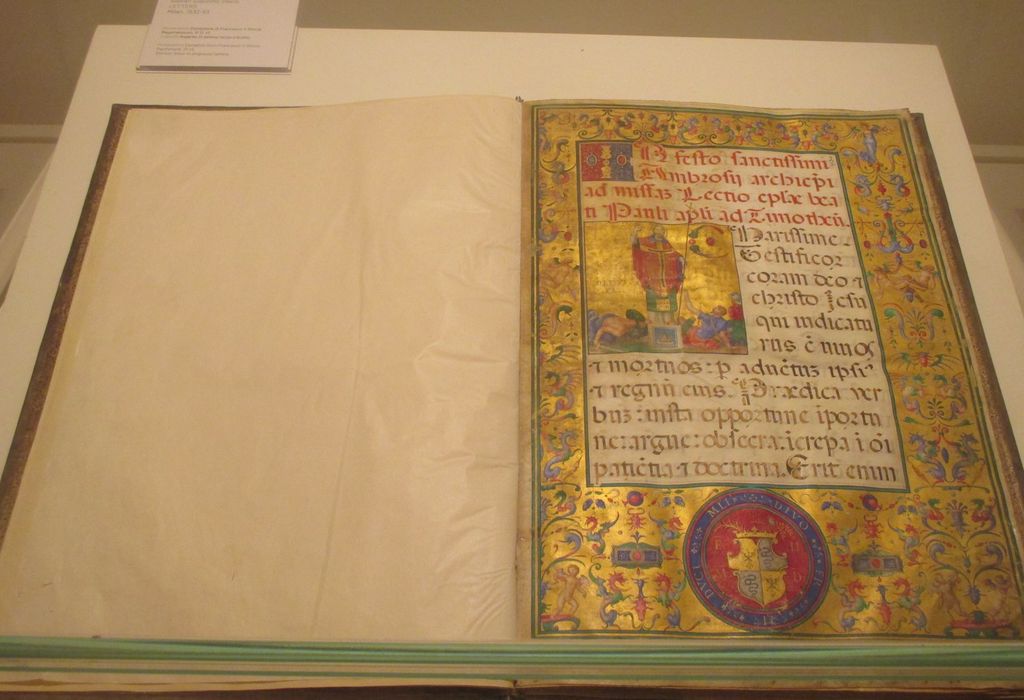 In festo sanctissimi
Ambrosij archiep̄i
ad missaz Lectio ep̄lae bea
ti Pauli ap̄li ad Timotheū.
Carissime
Testificor
coram deo ⁊
christo Jesu
qui iudicatu
rus ē viuos
⁊ mortuos: p̄ aduentuz ipsiꝰ
⁊ regnū eius. Praedica ver
buz: insta opportune iportu
ne: argue: obsecra: īcrepa ī oī
patiētia ⁊ doctrina. Erit enim
DIVO FR DVCI MLI